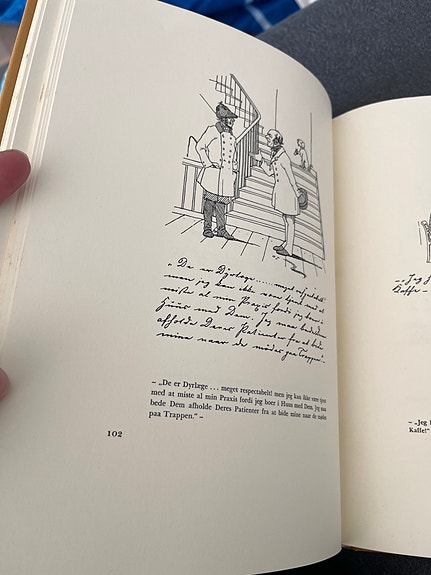 „De er Dyrlæge .... meget respectabelt!
men jeg kan ikke være tjent med at
miste al min Praxis fordi jeg boer i
Huus med Dem. Jeg maa bede Dem
afholde Deres Patienter fra at bide
mine naar de mødes paa Trappen".
– „De er Dyrlæge ... meget respectabelt! men jeg kan ikke være tjent
med at miste al min Praxis fordi jeg boer i Huus med Dem. Jeg maa
bede Dem afholde Deres Patienter fra at bide mine naar de mødes
paa Trappen." –
102
Kaffe –
– „Jeg
Kaffe!"